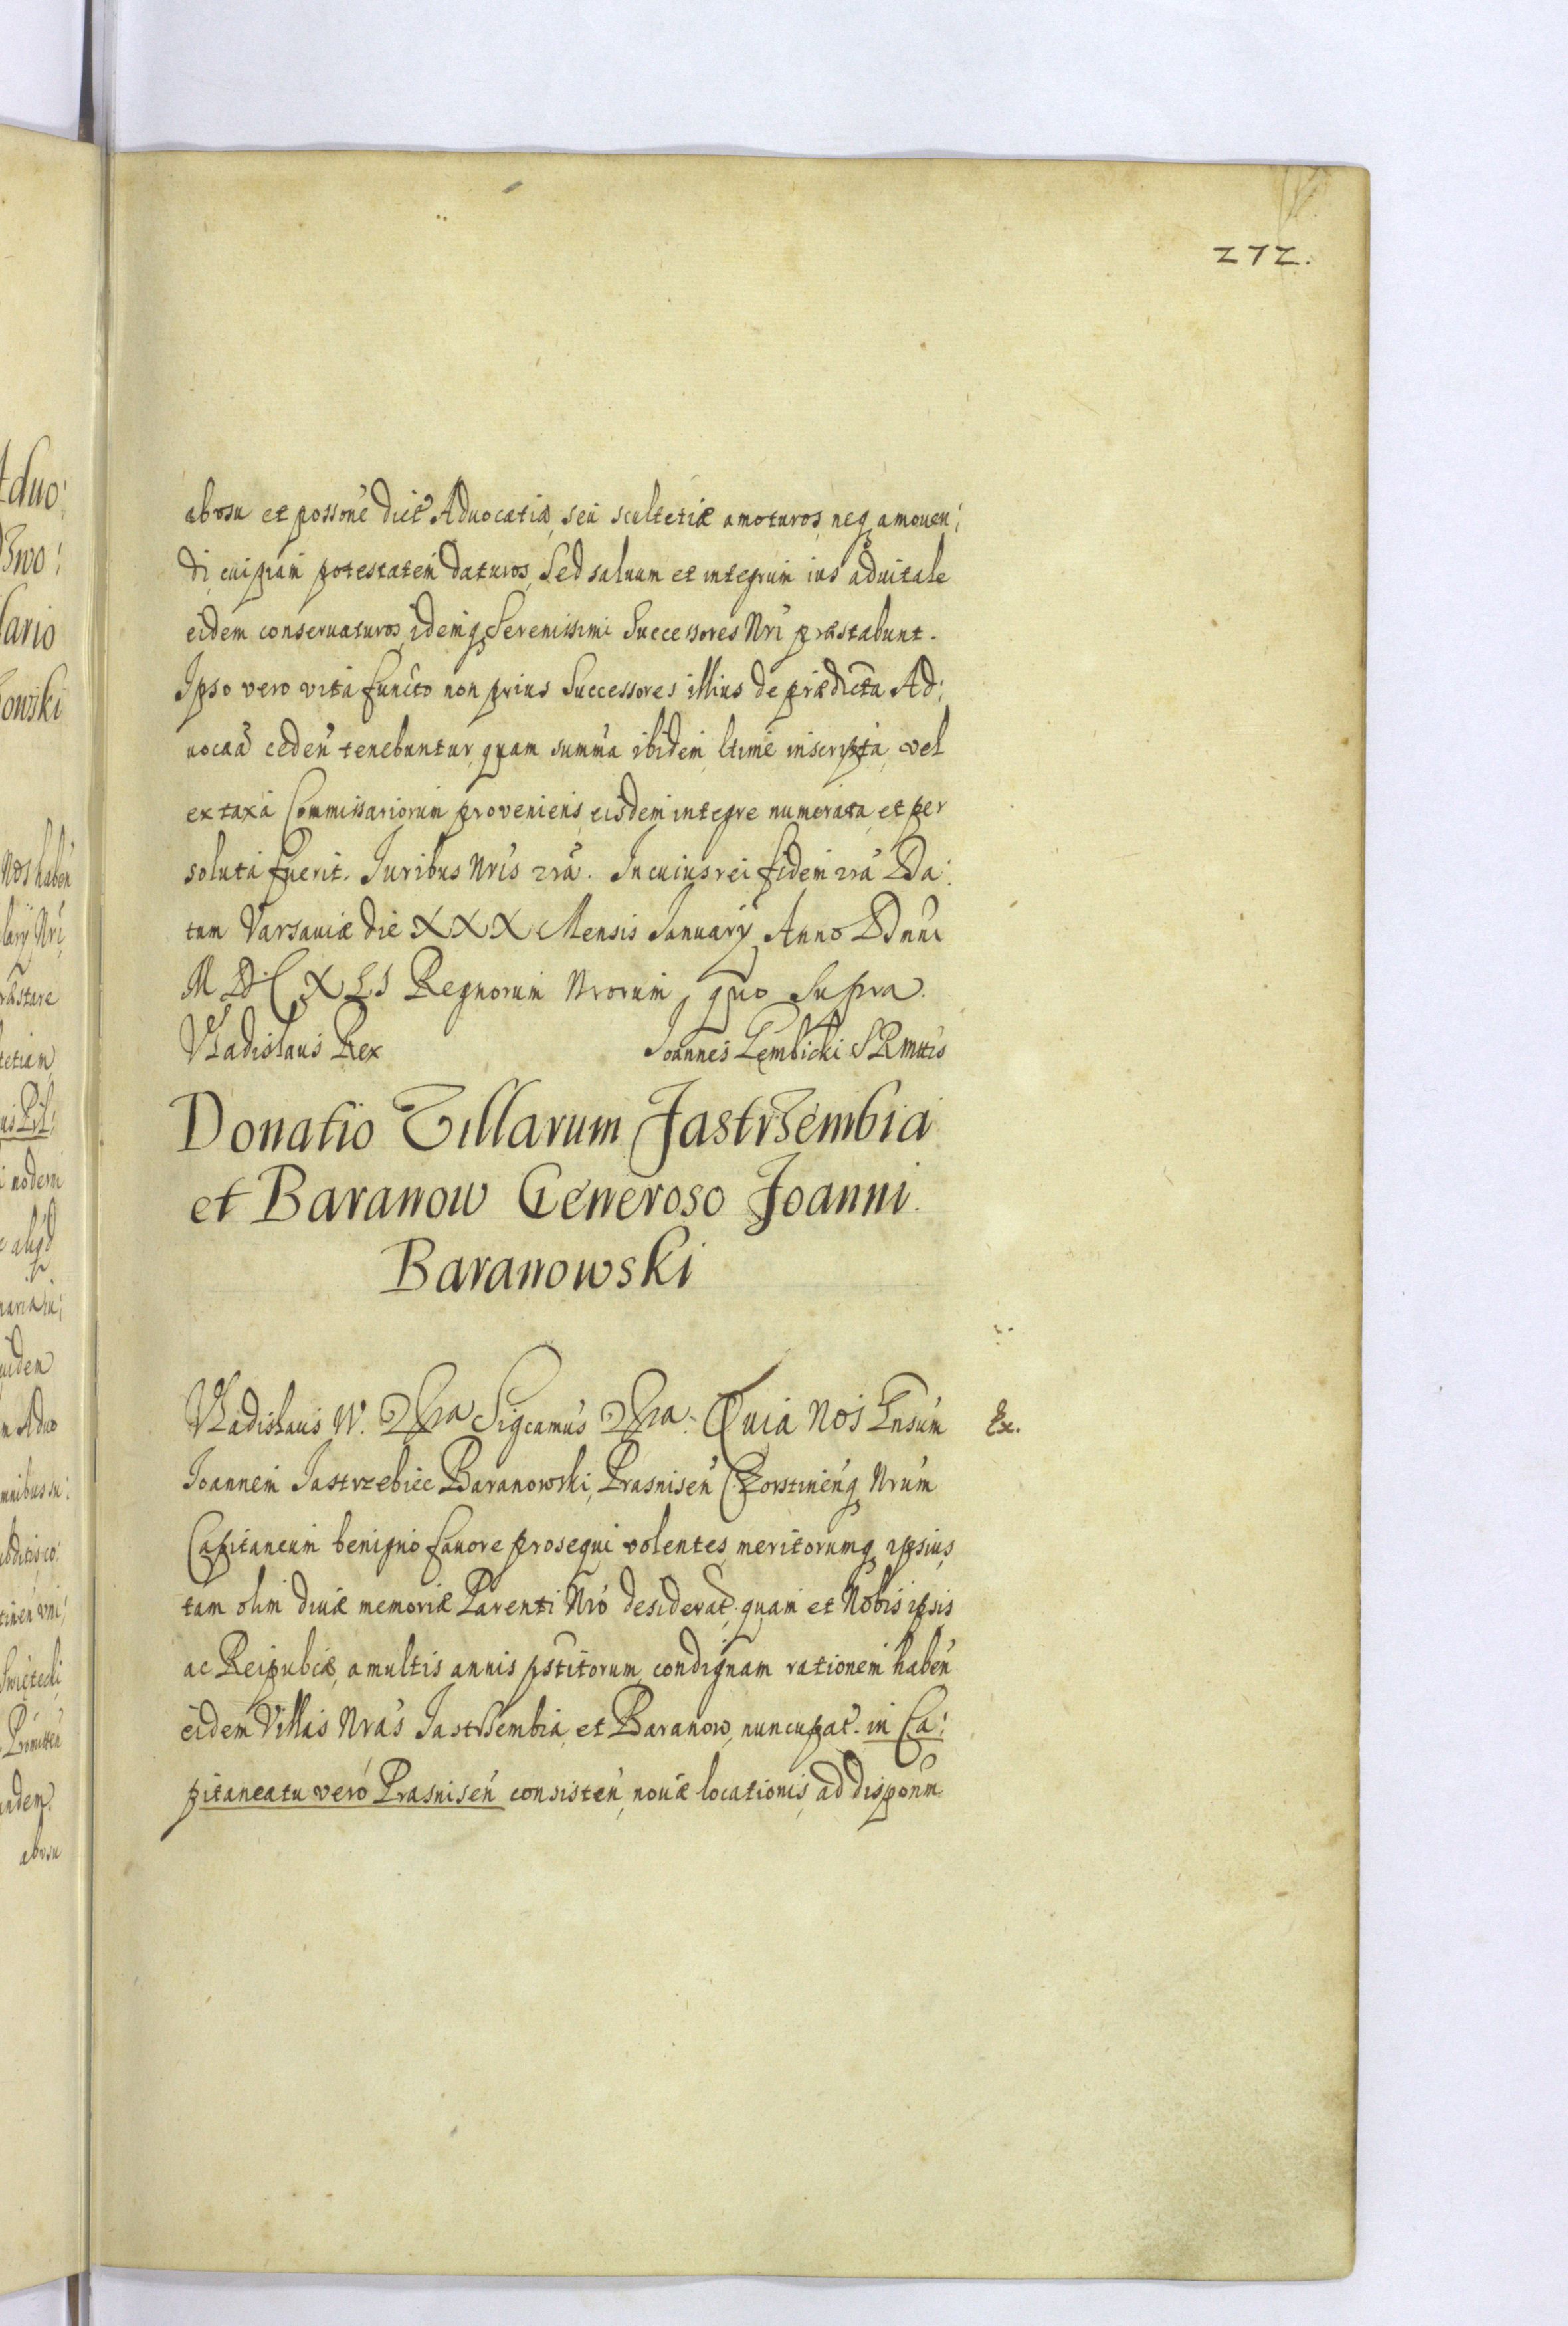 272.
ab usu et possone dict Aduocatiæ, seu scultetiæ amoturos, neq amouen:
di, cuipiam potestatem daturos, Sed saluum et integrum ius aduitale
eidem conseruaturos, idemq Serenissimi Successores Nri præstabunt.
Ipso vero vita functo non prius Successores illius de prædicta Ad:
uocaa ceden tenebuntur, quam summa ibidem ltime inscripta, vel
ex taxa Commissariorum proveniens, eisdem integre numerata, et per
soluta fuerit. Juribus Nris zra. In cuius rei fidem zra Da:
tum Varsauiæ die XXX Mensis January Anno Dnni
MDCXLI Regnorum Nrorum, quo Supra.
Vladislaus Rex Joannes Gembicki SRMttis
Donatio Villarum Jastrzembia
et Baranow Generoso Joanni
Baranowski
Vladislaus IV. zra Sigcamus zra. Quia Nos Gnsum Ex.
Joannem Jastrzebiec Baranowski, Prasnisen Czorstinenq Nrum
Capitaneum benigno fauore prosequi volentes, meritorumq ipsius,
tam olim diuæ memoriæ Parenti Nro desiderat. quam et Nobis ipsis
ac Reipubcæ, a multis annis pstitorum condignam rationem haben
eidem Villas Nras Jastrzembia, et Baranow, nuncupat. in Ca:
pitaneatu vero Prasnisen consisten, nouæ locationis, ad disponm